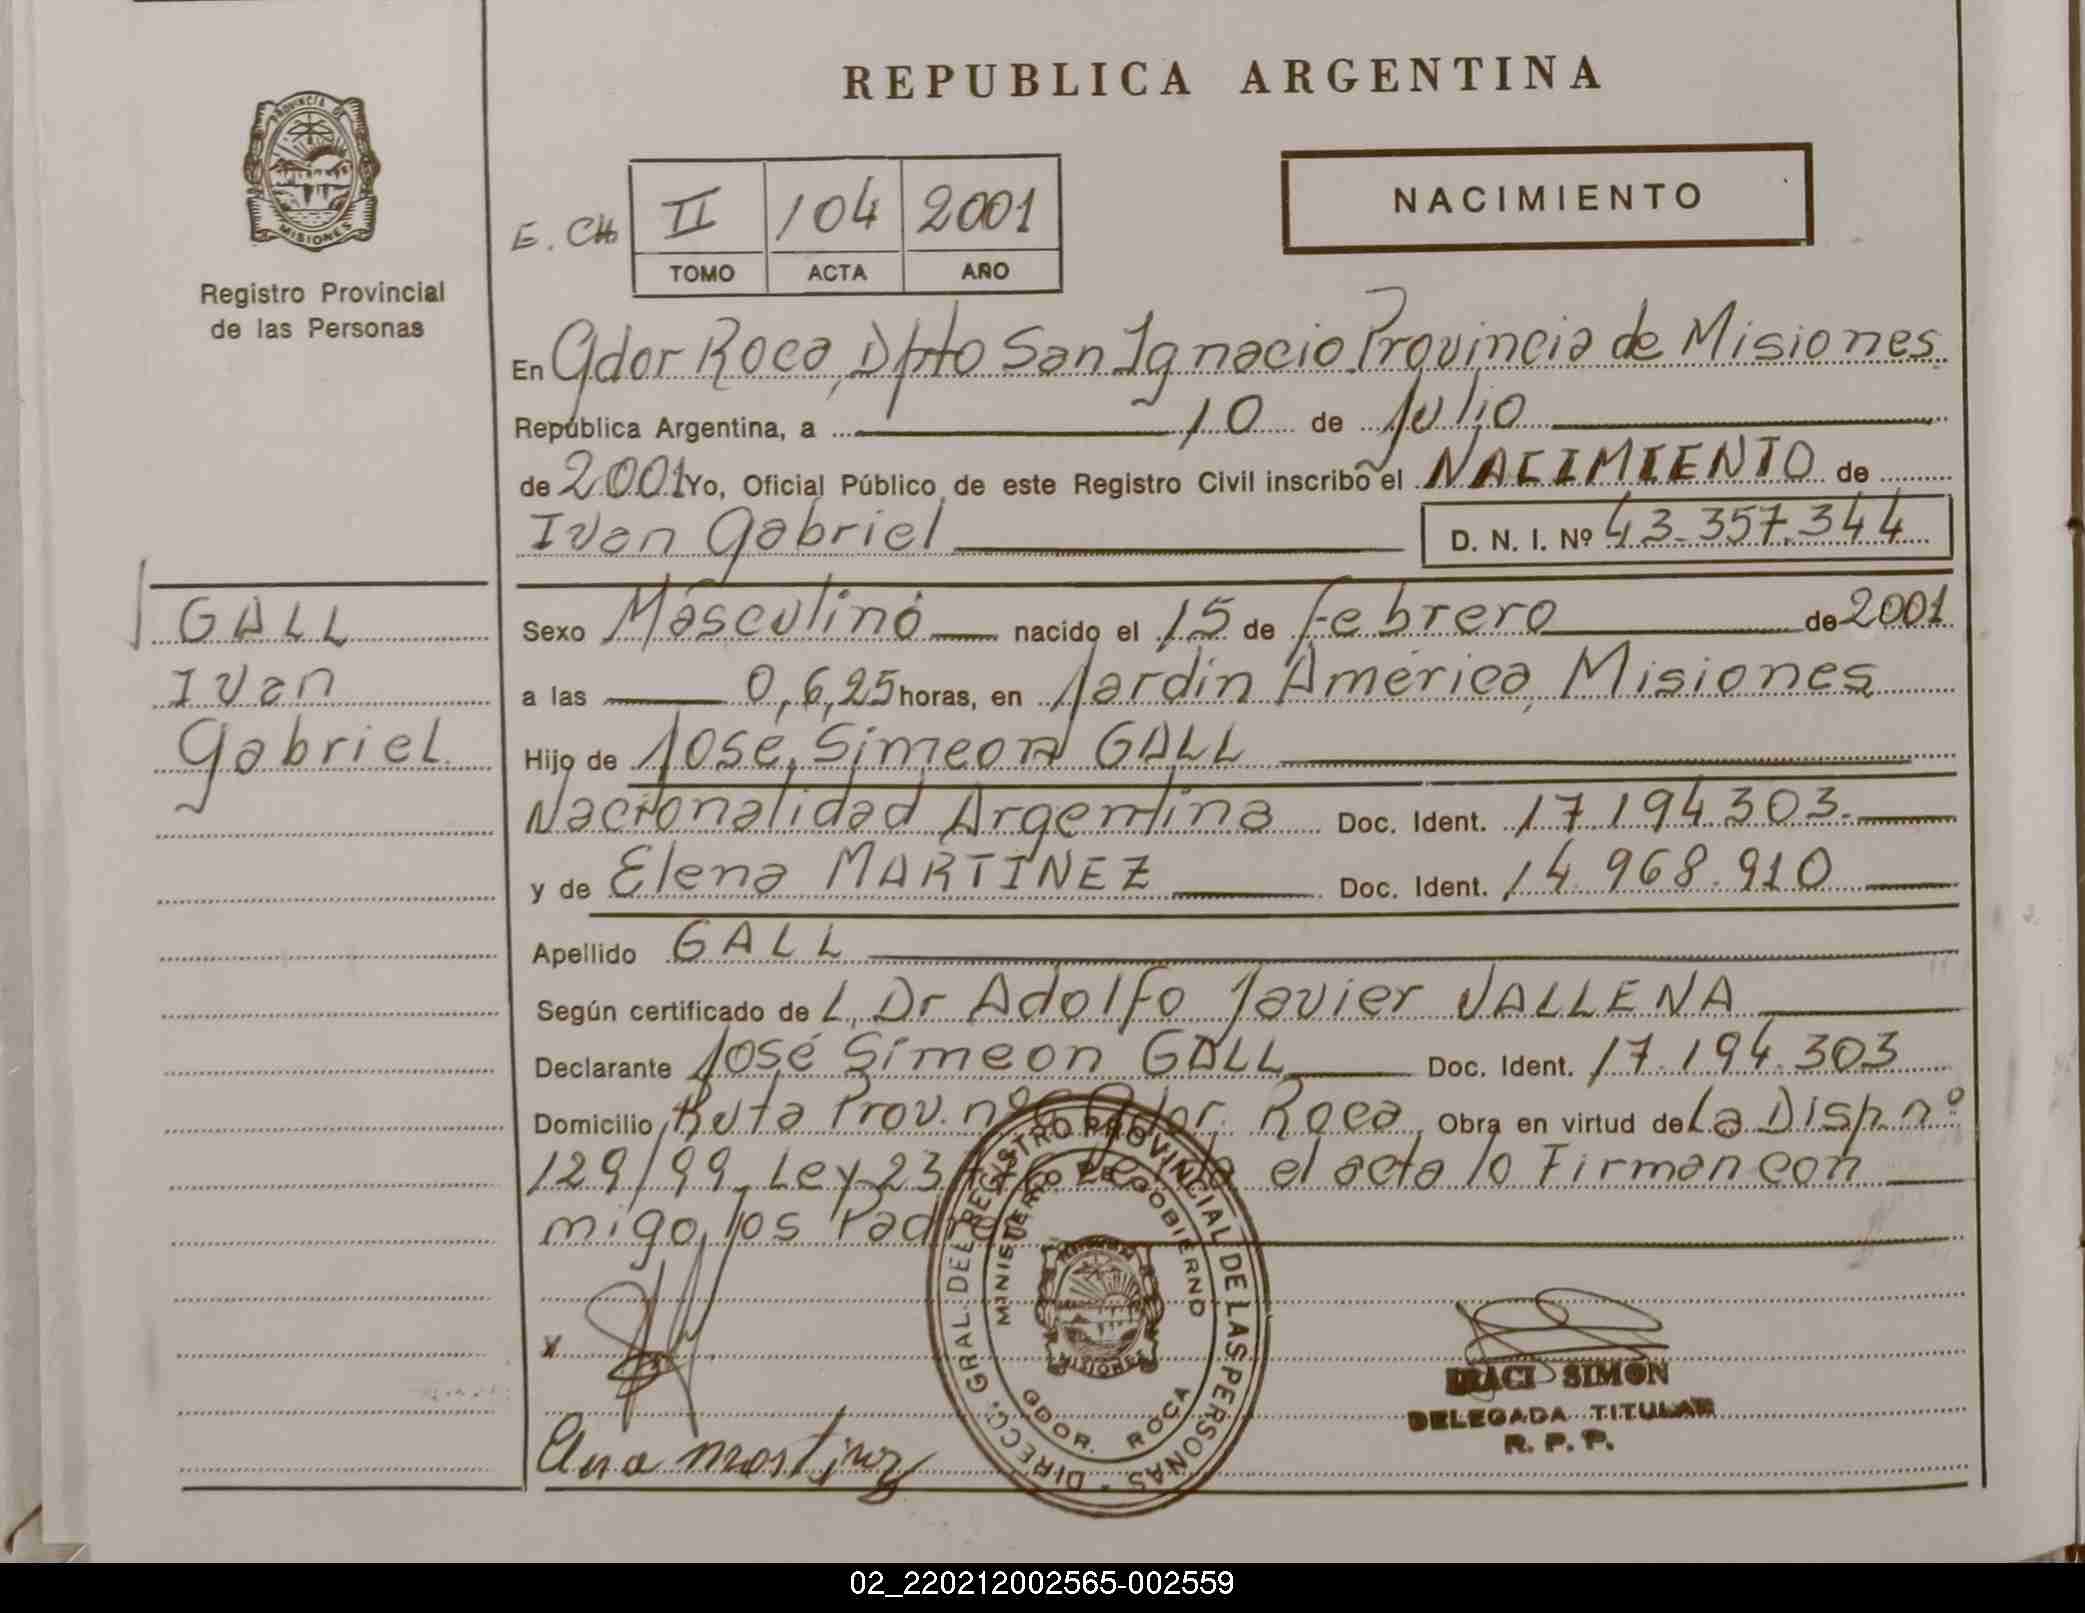 REPUBLICA ARGENTINA
PROVINCIA DE
MISIONES
Registro Provincial
de las Personas
E. CH
II 104 2001
TOMO ACTA AÑO
NACIMIENTO
En Gdor Roca, Dpto San Ignacio Provincia de Misiones
República Argentina, a 10 de Julio
de 2001 Yo, Oficial Público de este Registro Civil inscribo el NACIMIENTO de
Ivan Gabriel D. N. I. Nº 43.357.344
GALL
Ivan
Gabriel
Sexo Masculino nacido el 15 de Febrero de 2001
a las 0,6,25 horas, en Jardín América, Misiones
Hijo de José Simeon GALL
Nacionalidad Argentina Doc. Ident. 17.194.303.
y de Elena MARTINEZ Doc. Ident. 14.968.910
Apellido GALL
Según certificado de L, Dr Adolfo Javier VALLENA
Declarante José Simeon GALL Doc. Ident. 17.194.303
Domicilio Ruta Prov. nº Gdor. Roca Obra en virtud de La Disp. nº
129/99 Ley 23 el acta lo Firman con
migo, los Padres
DIRECC. GRAL. DEL REGISTRO PROVINCIAL DE LAS PERSONAS
MINISTERIO DE GOBIERNO
MISIONES
GDOR. ROCA
x
IRACI SIMON
DELEGADA TITULAR
R. P. P.
02_220212002565-002559